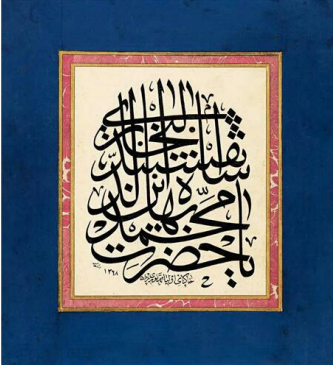 يا حضرت
محمد
بهاء الدين
شاه نقشبند
البخارى
١٣٦٨